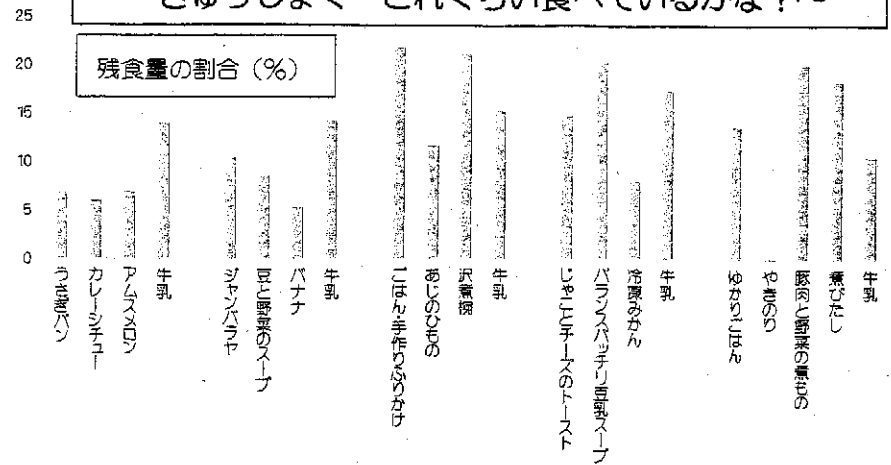 きゅうしょく どれくらい食べているかな？～
残食量の割合（％）
25
20
15
10
5
0
うさぎパン
カレーシチュー
アムスメロン
牛乳
ジャンバラヤ
豆と野菜のスープ
バナナ
牛乳
ごはん・手作りふりかけ
あじのひもの
沢煮椀
牛乳
じゃことチーズのトースト
バランスバッチリ豆乳スープ
冷凍みかん
牛乳
ゆかりごはん
やきのり
豚肉と野菜の煮もの
煮びたし
牛乳